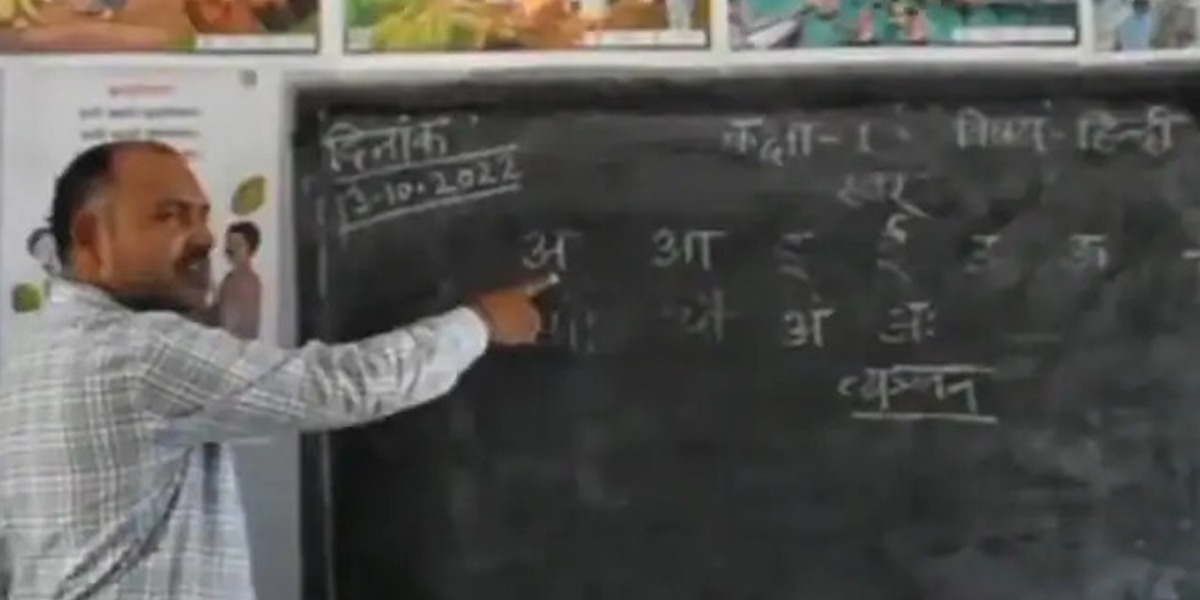 दिनांक कक्षा-1 विषय-हिन्दी
3-10-2022 स्वर
अ आ इ ई उ ऊ
ओ औ अं अः
व्यञ्जन